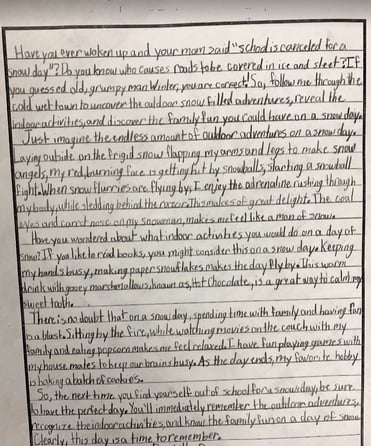 Have you ever woken up and your mom said "school is canceled for a
snow day"? Do you know who causes roads to be covered in ice and sleet? If
you guessed old, grumpy man Winter, you are correct! So, follow me through the
cold wet town to uncover the outdoor snow filled adventures, reveal the
indoor activities, and discover the family fun you could have on a snow day.
Just imagine the endless amount of outdoor adventures on a snow day.
Laying outside on the frigid snow flapping my arms and legs to make snow
angels, my red, burning face is getting hit by snowballs, starting a snowball
fight. When snow flurries are flying by, I enjoy the adrenaline rushing through
my body, while sledding behind the This makes of great delight. The coal
eyes and carrot nose on my snowman, makes me feel like a man of snow.
Have you wondered about what indoor activities you would do on a day of
snow? If you like to read books, you might consider this on a snow day. Keeping
my hands busy, making paper snowflakes makes the day fly by. This warm
drink with gooey marshmallows, known as, Hot Chocolate, is a great way to calm my
sweet tooth.
There is no doubt that on a snow day, spending time with family and having fun
is a blast. Sitting by the fire, while watching movies on the couch with my
family and eating popcorn makes me feel relaxed. I have fun playing games with
my house mates to keep our brains busy. As the day ends, my favorite hobby
is baking a batch of cookies.
So, the next time you find yourself out of school for a snow day, be sure
to have the perfect day. You'll immediately remember the outdoor adventures,
recognize the indoor activities, and know the family fun on a day of snow.
Clearly, this day is a time to remember.